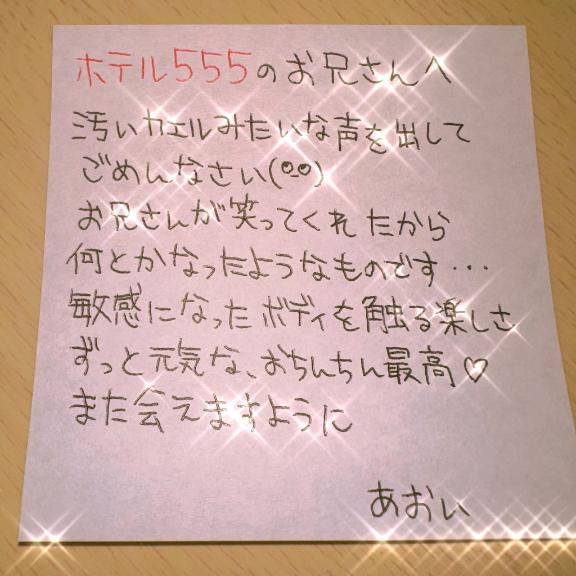 ホテル555のお兄さんへ
汚いカエルみたいな声を出して
ごめんなさい(°_°)
お兄さんが笑ってくれたから
何とかなったようなものです…
敏感になったボディを触る楽しさ
ずっと元気な、おちんちん最高♡
また会えますように
あおい